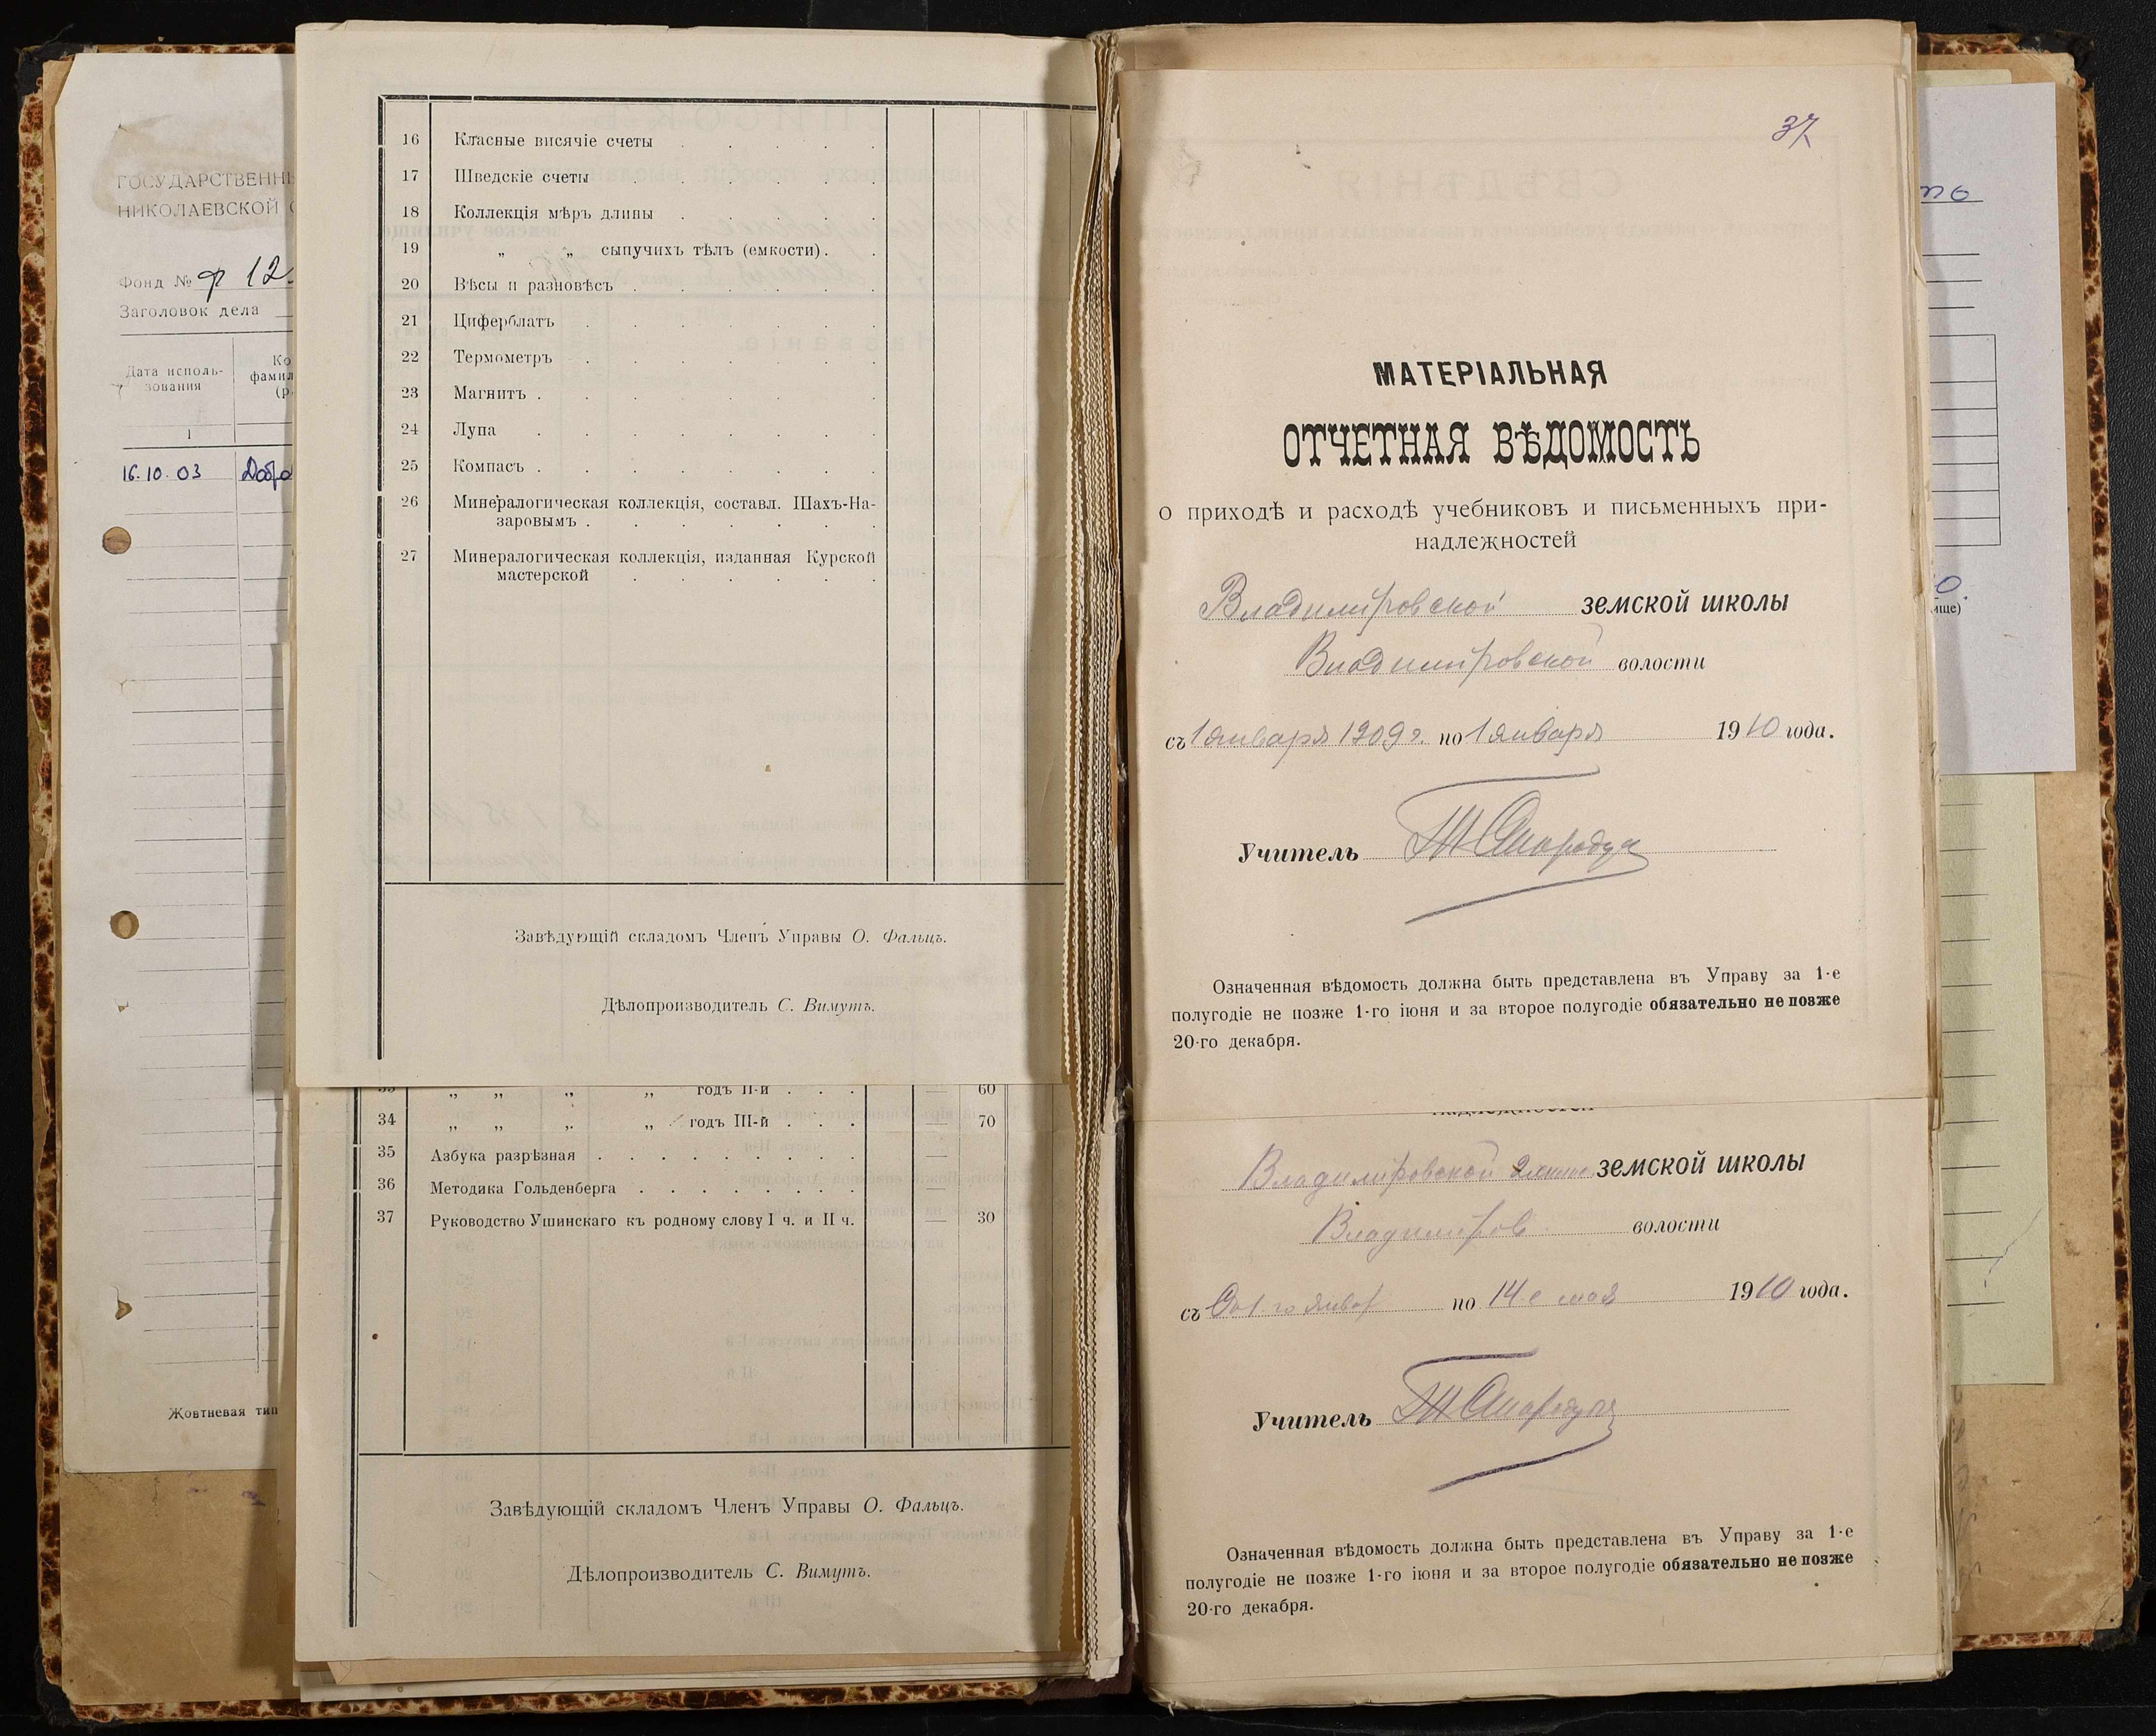 ГОСУДАРСТВЕНН
НИКОЛАЕВСКОЙ
Фонд № Р 12
Заголовок дела
Дата исполь-
зования
Ко
фамил
(р
1
16.10.03 Добро
Жовтневая тип
16 Класные висячіе счеты
17 Шведскіе счеты
18 Коллекція мѣръ длины
19 „ „ сыпучихъ тѣлъ (емкости).
20 Вѣсы и разновѣсъ
21 Циферблатъ
22 Термометръ
23 Магнитъ
24 Лупа
25 Компасъ
26 Минералогическая коллекція, составл. Шахъ-На-
заровымъ
27 Минералогическая коллекція, изданная Курской
мастерской
Завѣдующій складомъ Членъ Управы О. Фальцъ.
Дѣлопроизводитель С. Вимутъ.
33 „ „ „ „ годъ II-й — 60
34 „ „ „ „ годъ III-й — 70
35 Азбука разрѣзная —
36 Методика Гольденберга —
37 Руководство Ушинскаго къ родному слову I ч. и II ч. — 30
Завѣдующій складомъ Членъ Управы О. Фальцъ.
Дѣлопроизводитель С. Вимутъ.
37
МАТЕРІАЛЬНАЯ
ОТЧЕТНАЯ ВѢДОМОСТЬ
о приходѣ и расходѣ учебниковъ и письменныхъ при-
надлежностей
Владимировской земской школы
Владимировской волости
съ 1 января 1909 г. по 1 января 1910 года.
Учитель
Означенная вѣдомость должна быть представлена въ Управу за 1-е
полугодіе не позже 1-го іюня и за второе полугодіе обязательно не позже
20-го декабря.
надлежностей
Владимировской 2 земской школы
Владимиров. волости
съ 1 го январ по 14 е мая 1910 года.
Учитель
Означенная вѣдомость должна быть представлена въ Управу за 1-е
полугодіе не позже 1-го іюня и за второе полугодіе обязательно не позже
20-го декабря.